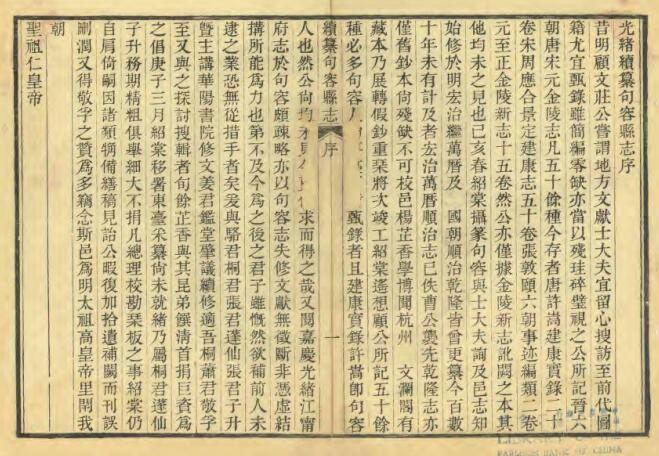 光緒續纂句容縣志序
昔明顧文莊公嘗謂地方文獻士大夫宜留心搜訪至前代圖
籍尤宜甄錄雖簡編零缺亦當以殘珪碎璧視之公所記晉六
朝唐宋元金陵志凡五十餘種今存者唐許嵩建康實錄二十
卷宋周應合景定建康志五十卷張敦頤六朝事迹編類二卷
元至正金陵新志十五卷然公亦僅據金陵新志訛闕之本其
他均未之見也已亥春紹棠攝篆句容與士大夫詢及邑志知
始修於明宏治繼萬曆及 國朝順治乾隆皆曾更纂今百數
十年未有計及者宏治萬曆順治志已佚曹公襲先乾隆志亦
僅舊鈔本尙殘缺不可校邑楊芷香學博聞杭州 文瀾閣有
藏本乃展轉假鈔重棃將次竣工紹棠遙想顧公所記五十餘
種必多句容人 甄錄者且建康實錄許嵩卽句容
續纂句容縣志 序 一
人也然公尙均未見 求而得之哉又閱嘉慶光緒江甯
府志於句容頗疎略亦以句容志失修文獻無徵斷非憑虛結
搆所能為力也第不及今為之後之君子雖慨然欲補前人未
逮之業恐無從措手者矣爰與駱君桐君張君蓬仙張君子升
曁主講華陽書院修文姜君鑑堂肇議續修適吾桐蕭君敬孚
至又與之探討搜輯者句餘芷香與其昆弟饌淸首捐巨資為
之倡庚子三月紹棠移署東臺采纂尙未就緒乃屬桐君蓬仙
子升務期精粗俱舉細大不捐凡總理校勘棃板之事紹棠仍
自肩倚嗣因諸類犕備繕稿見詒公暇復加拾遺補闕而刊誤
刪潤又得敬孚之贊為多竊念斯邑為明太祖高皇帝里閈我
朝
聖祖仁皇帝